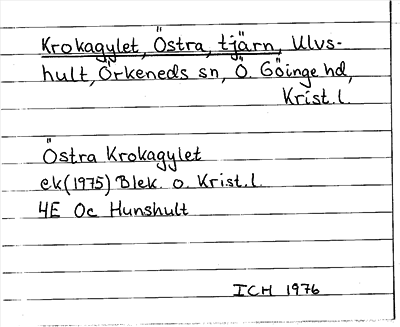 Krokagylet, Östra, tjärn, Ulvs-
hult, Örkeneds sn, Ö. Göinge hd,
Krist. l.
Östra Krokagylet
ek (1975) Blek. o. Krist. l.
4E Oc Hunshult
ICH 1976